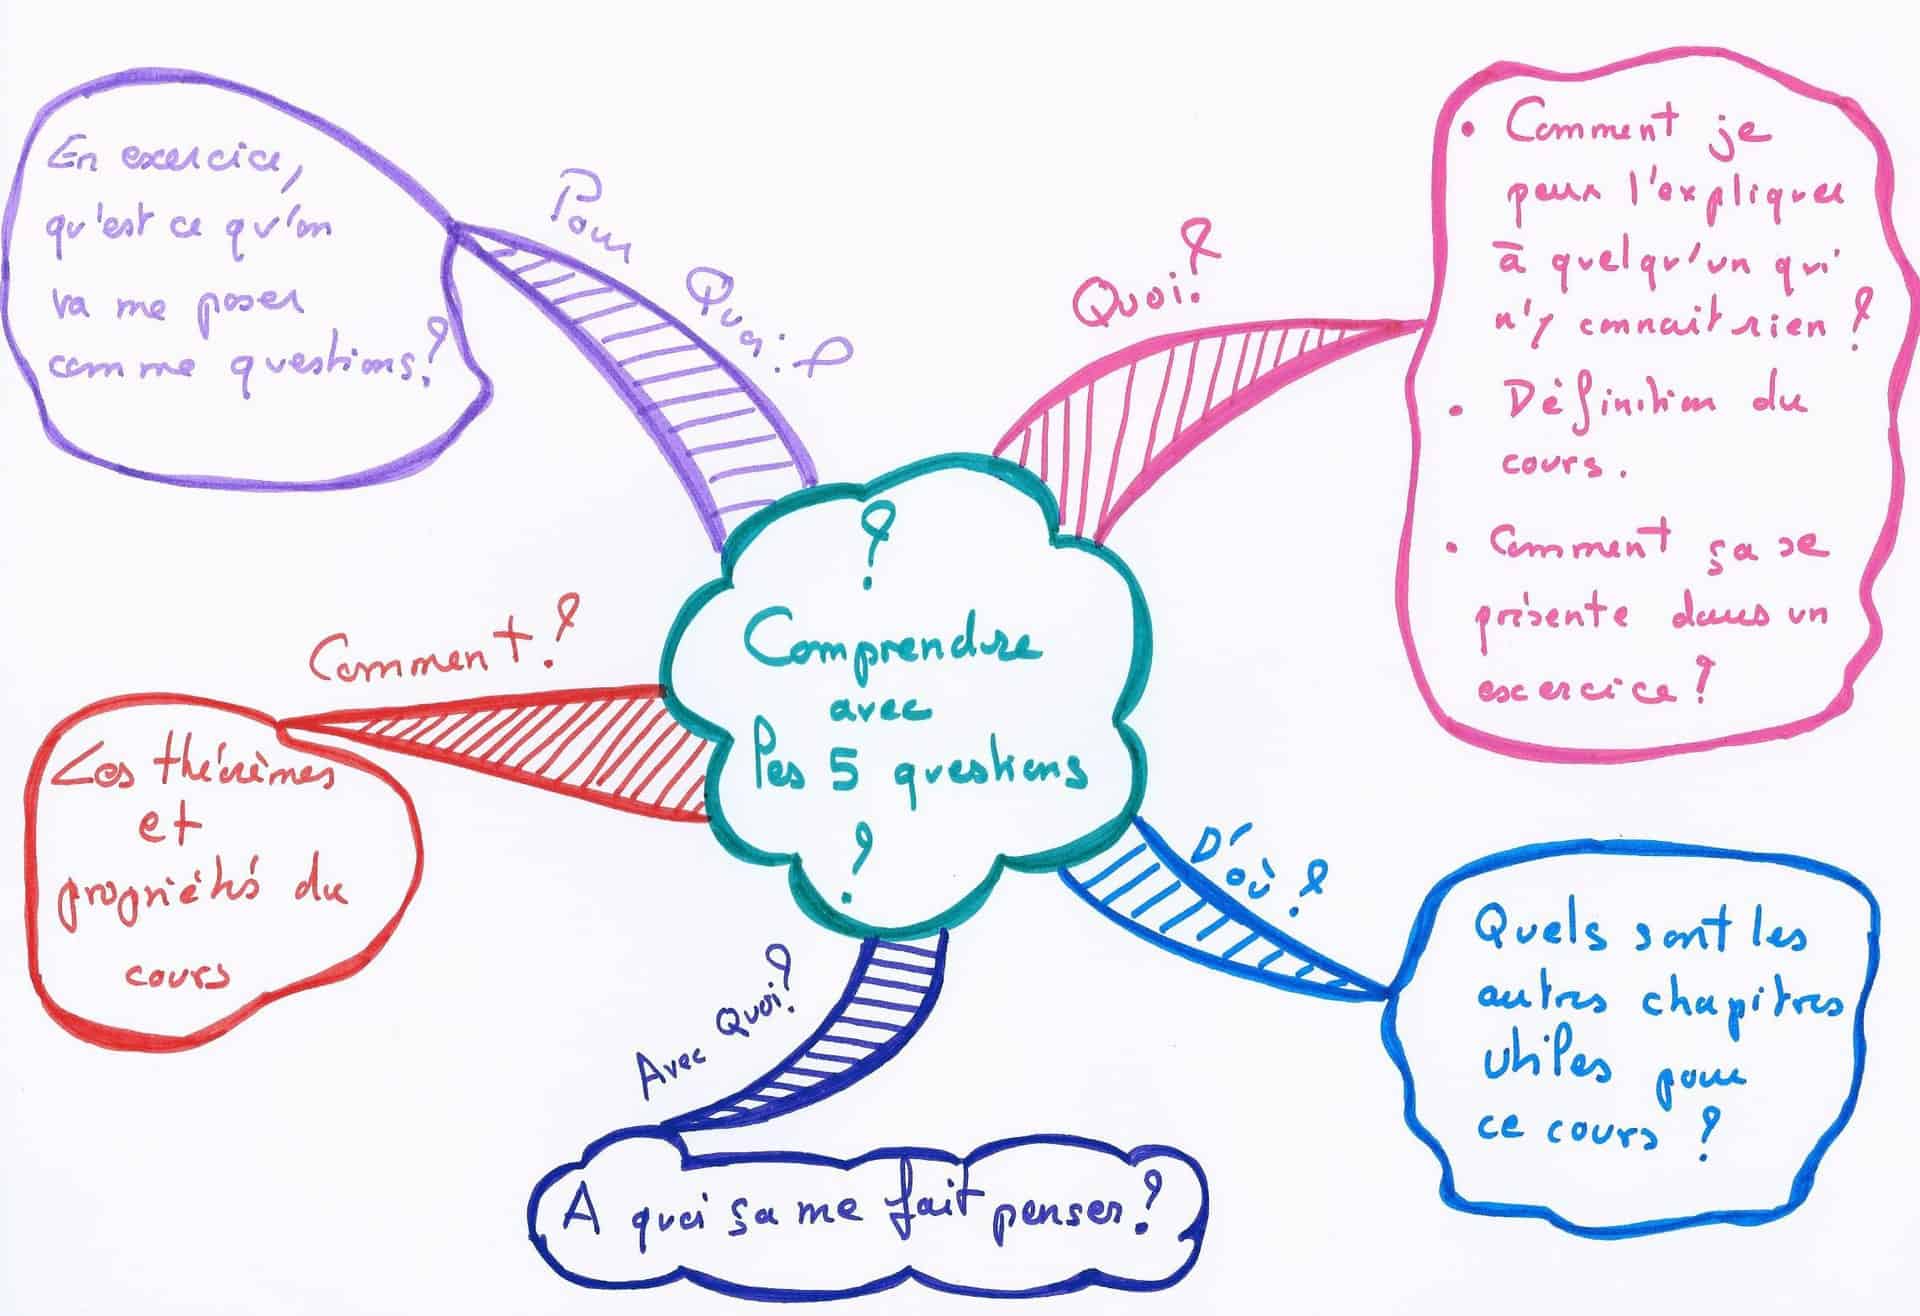 ?
Comprendre
avec
les 5 questions
?
Quoi?
• Comment je
peux l'expliquer
à quelqu'un qui
n'y connait rien ?
• Définition du
cours.
• Comment ça se
présente dans un
exercice ?
D'où ?
Quels sont les
autres chapitres
utiles pour
ce cours ?
Avec Quoi?
A quoi ça me fait penser?
Comment ?
Les théorèmes
et
propriétés du
cours
Pour Quoi ?
En exercice,
qu'est ce qu'on
va me poser
comme questions?